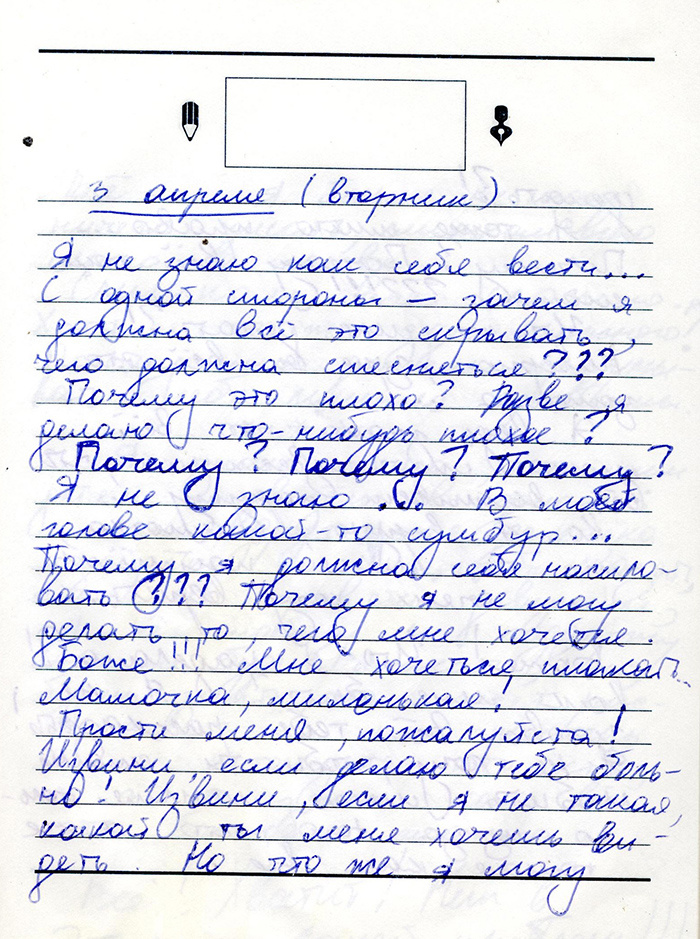 3 апреля (вторник).
Я не знаю как себя вести...
С одной стороны – зачем я
должна всё это скрывать,
чего должна стесняться???
Почему это плохо? Разве я
делаю что-нибудь плохое?
Почему? Почему? Почему?
Я не знаю... В моей
голове какой-то сумбур...
Почему я должна себя насило-
вать??? Почему я не могу
делать то, чего мне хочется.
Боже!!! Мне хочеться плакать...
Мамочка, миленькая!
Прости меня, пожалуйста!
Извини, если делаю тебе боль-
но! Извини, если я не такая,
какой ты меня хочешь ви-
деть. Но что же я могу